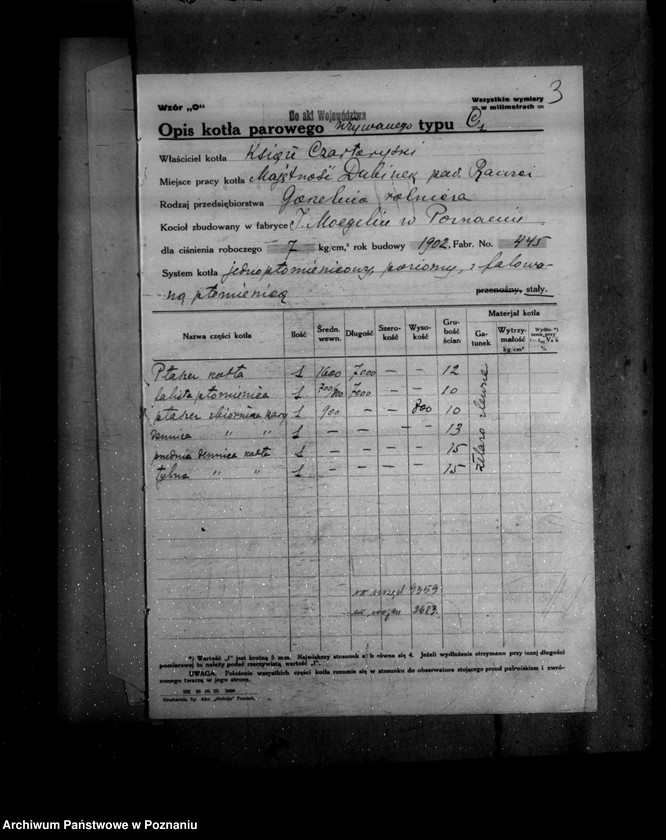 3
Wzór „O“
Do akt Województwa
Wszystkie wymiary
= w milimetrach =
Opis kotła parowego używanego typu
Właściciel kotła Książę Czartoryski
Miejsce pracy kotła Majętność Dubinek pow.
Rodzaj przedsiębiorstwa Gorzelnia rolnicza
Kocioł zbudowany w fabryce J. Moegelin w Poznaniu
dla ciśnienia roboczego 7 kg/cm,² rok budowy 1902, Fabr. No. 445
System kotła jednopłomienicowy, poziomy, z falowa-
ną płomienicą przenośny, stały.
Nazwa części kotła Ilość Średn. wewn. Długość Szerokość Wysokość Grubość ścian Materjał kotła
Gatunek Wytrzymałość kg/cm²
Płaszcz kotła 1 1600 7000 — — 12
falista płomienica 1 700/800 7000 — — 10
płaszcz zbiornika pary 1 900 — — 800 10
dennica " " 1 — — — — 13
przednia dennica kotła 1 — — — — 15
tylna " " 1 — — — — 15
żelazo zlewne
9359
3683.
*) Wartość „l“ jest krotną 5 mm. Największy stosunek a:b równa się 4. Jeżeli wydłużenie otrzymano przy innej długości
pomiarowej to należy podać rzeczywistą wartość „l“.
UWAGA. Położenie wszystkich części kotła rozumie się w stosunku do obserwatora stojącego przed paleniskiem i zwró-
conego twarzą w jego stronę.
Drukarnia Sp. Akc. „Ostoja“ Poznań.
Archiwum Państwowe w Poznaniu